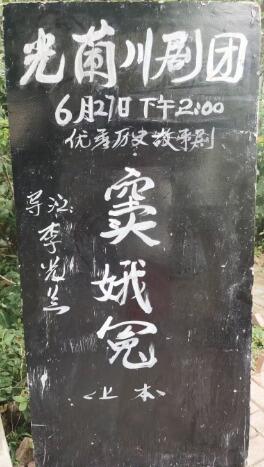 光菌川剧团
6月21日下午2:00
优秀历史故事剧
导演
李光兰
窦娥冤
<上本>